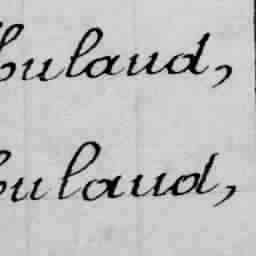 bulaud,
bulaud,